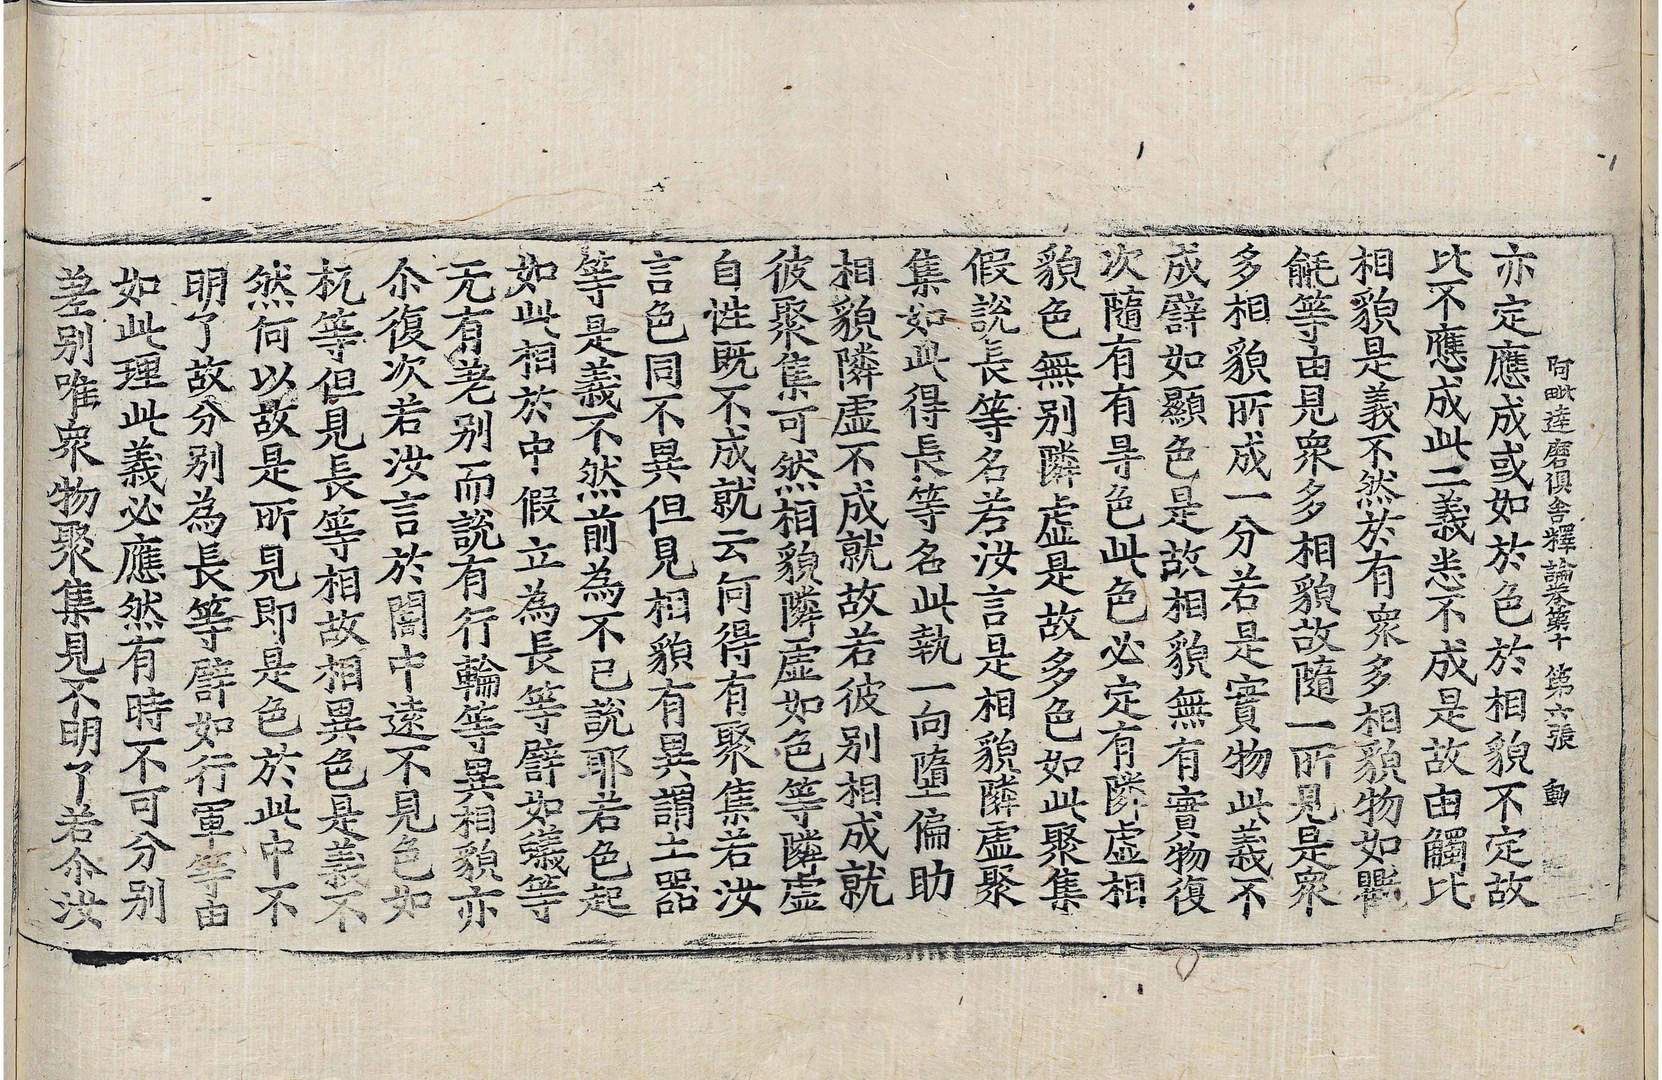 阿毗達磨俱舍釋論卷第十 第六張 動
亦定應成或如於色於相貌不定故
比不應成此二義悉不成是故由觸比
相貌是義不然於有衆多相貌物如𣰽
毹等由見衆多相貌故隨一所見是衆
多相貌所成一分若是實物此義不
成譬如顯色是故相貌無有實物復
次隨有有㝵色此色必定有隣虛相
貌色無別隣虛是故多色如此聚集
假說長等名若汝言是相貌隣虛聚
集如此得長等名此執一向墮偏助
相貌隣虛不成就故若彼別相成就
彼聚集可然相貌隣虛如色等隣虛
自性既不成就云何得有聚集若汝
言色同不異但見相貌有異謂土器
等是義不然前為不已說耶若色起
如此相於中假立為長等譬如蟻等
无有差別而說有行輪等異相貌亦
尒復次若汝言於闇中遠不見色如
杌等但見長等相故相異色是義不
然何以故是所見即是色於此中不
明了故分別為長等譬如行軍等由
如此理此義必應然有時不可分別
差別唯衆物聚集見不明了若尒汝